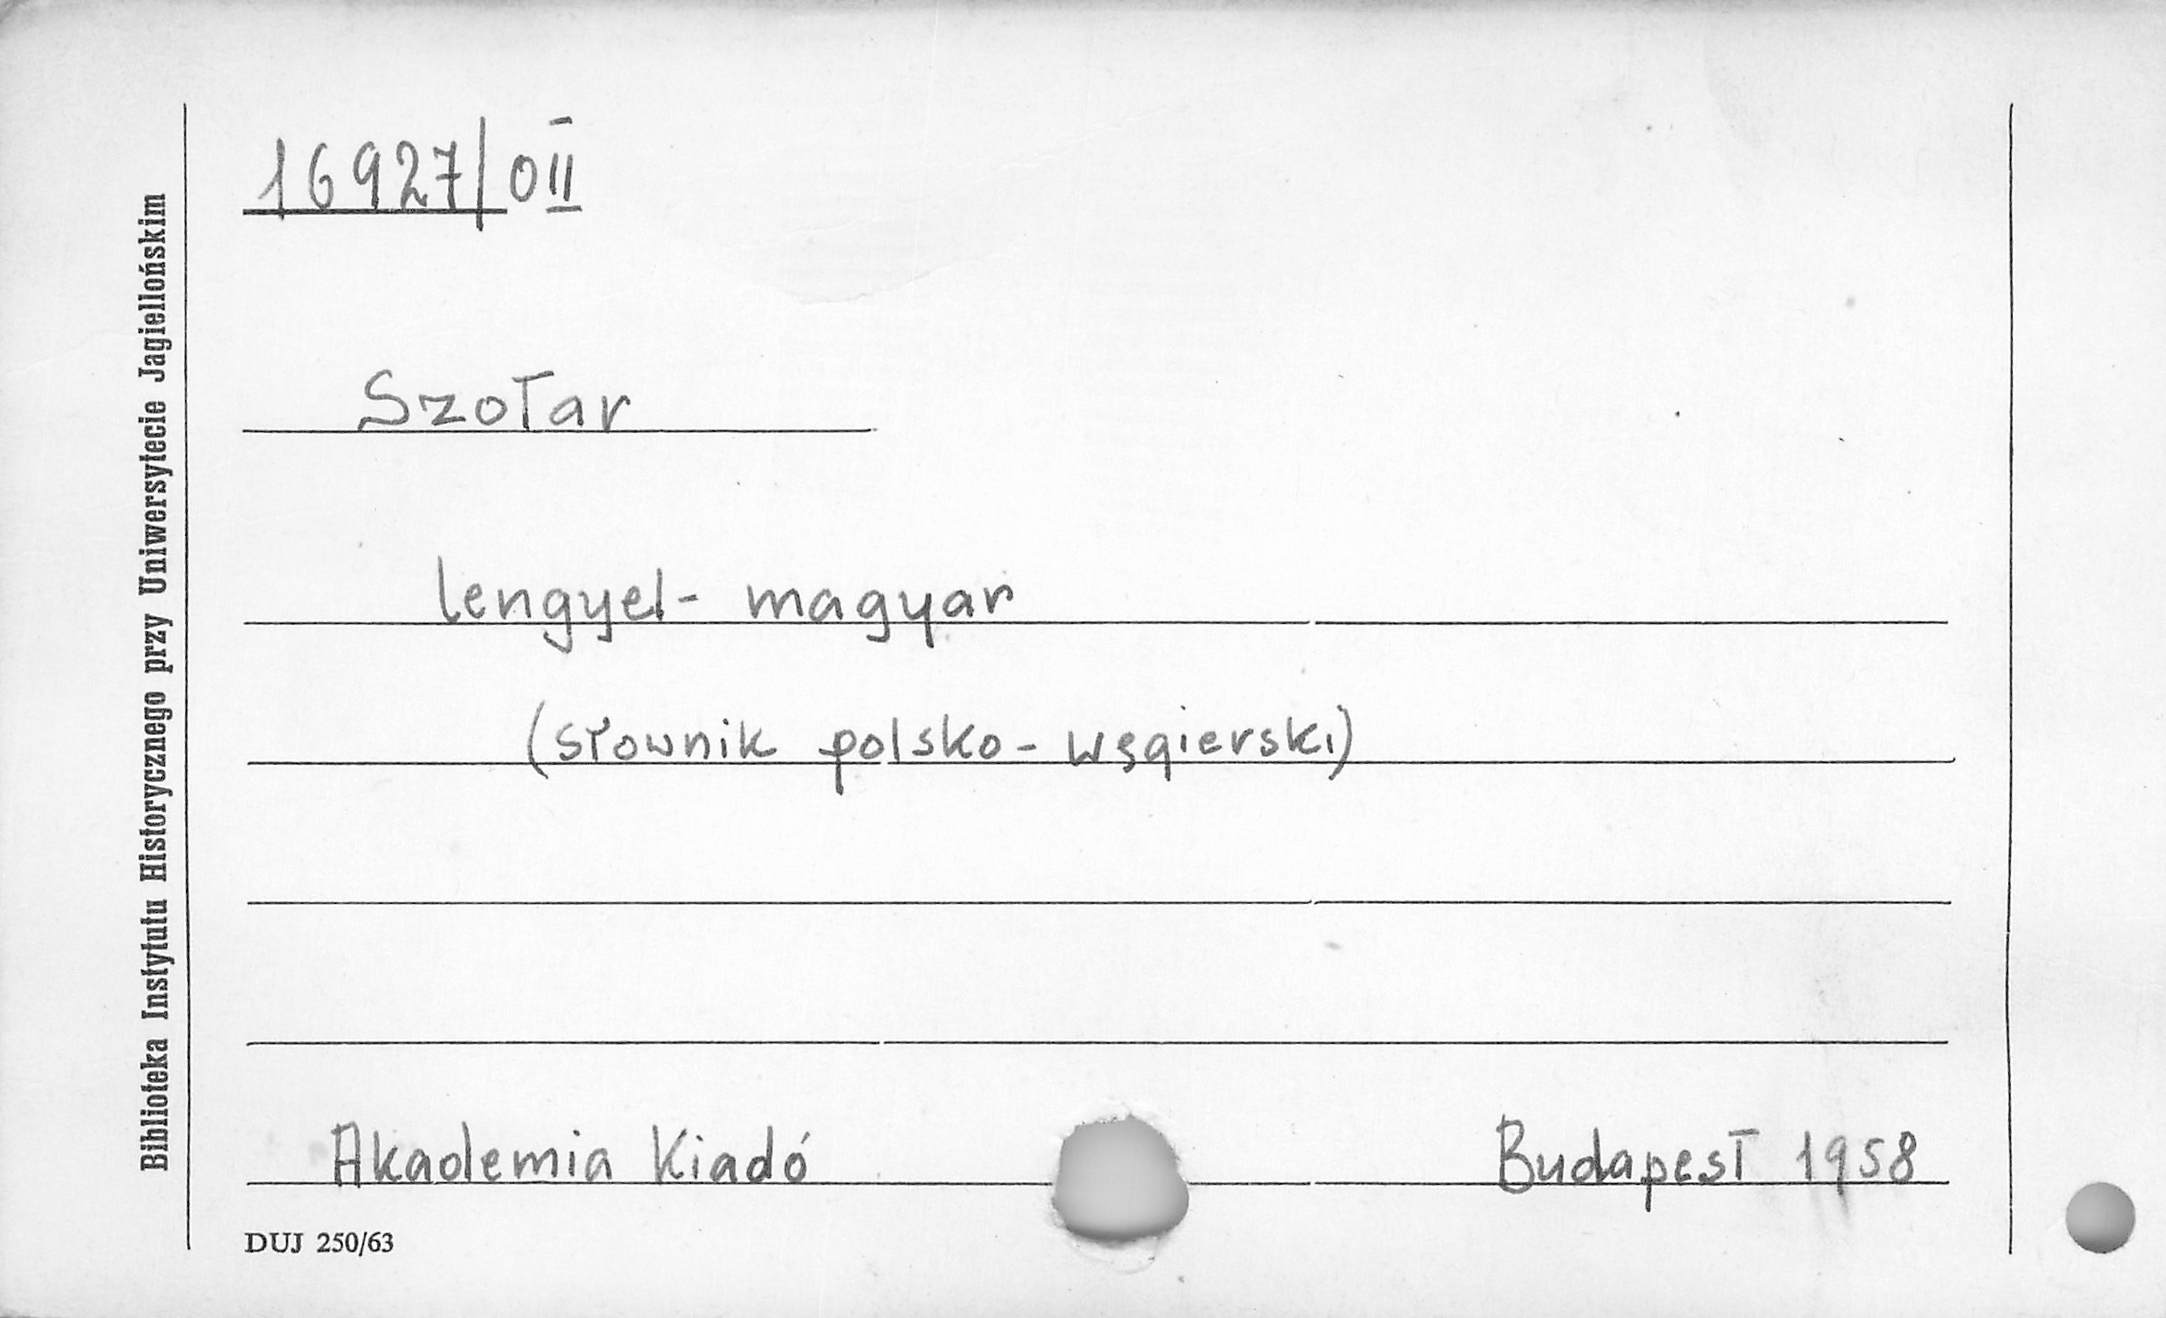 16927/0II
Szotar
lengyel- magyar
(słownik polsko-węgierski)
Akademia Kiadó Budapest 1958
DUJ 250/63
Biblioteka Instytutu Historycznego przy Uniwersytecie Jagiellońskim